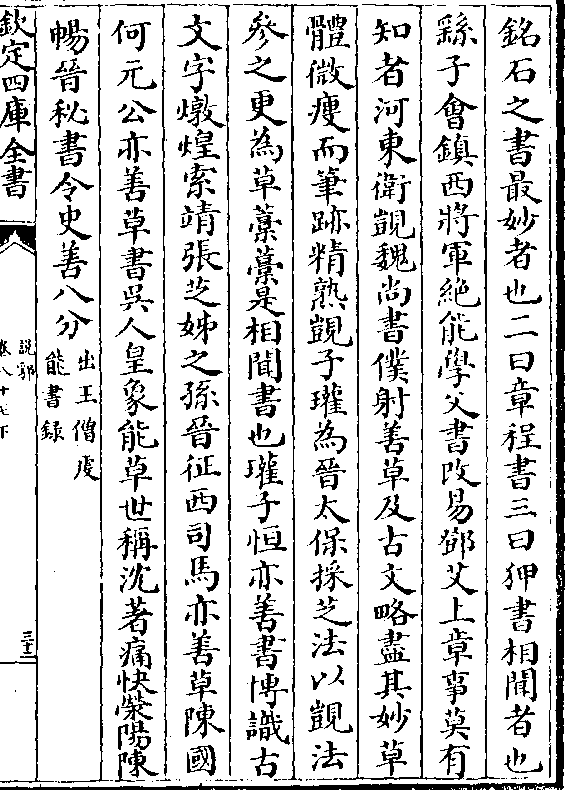 銘石之書最妙者也二曰章程書三曰狎書相聞者也
繇子會鎮西將軍絶能學父書改易鄧艾上章事莫有
知者河東衛覬魏尚書僕射善草及古文略盡其妙草
體微瘦而筆跡精熟覬子瓘為晉太保採芝法以覬法
參之更為草藁藁是相聞書也瓘子恒亦善書博識古
文字燉煌索靖張芝姊之孫晉征西司馬亦善草陳國
何元公亦善草書吳人皇象能草世稱沈著痛快滎陽陳
暢晉秘書令史善八分出王僧䖍
能書錄
欽定四庫全書
說郛
卷八十七下
三十三